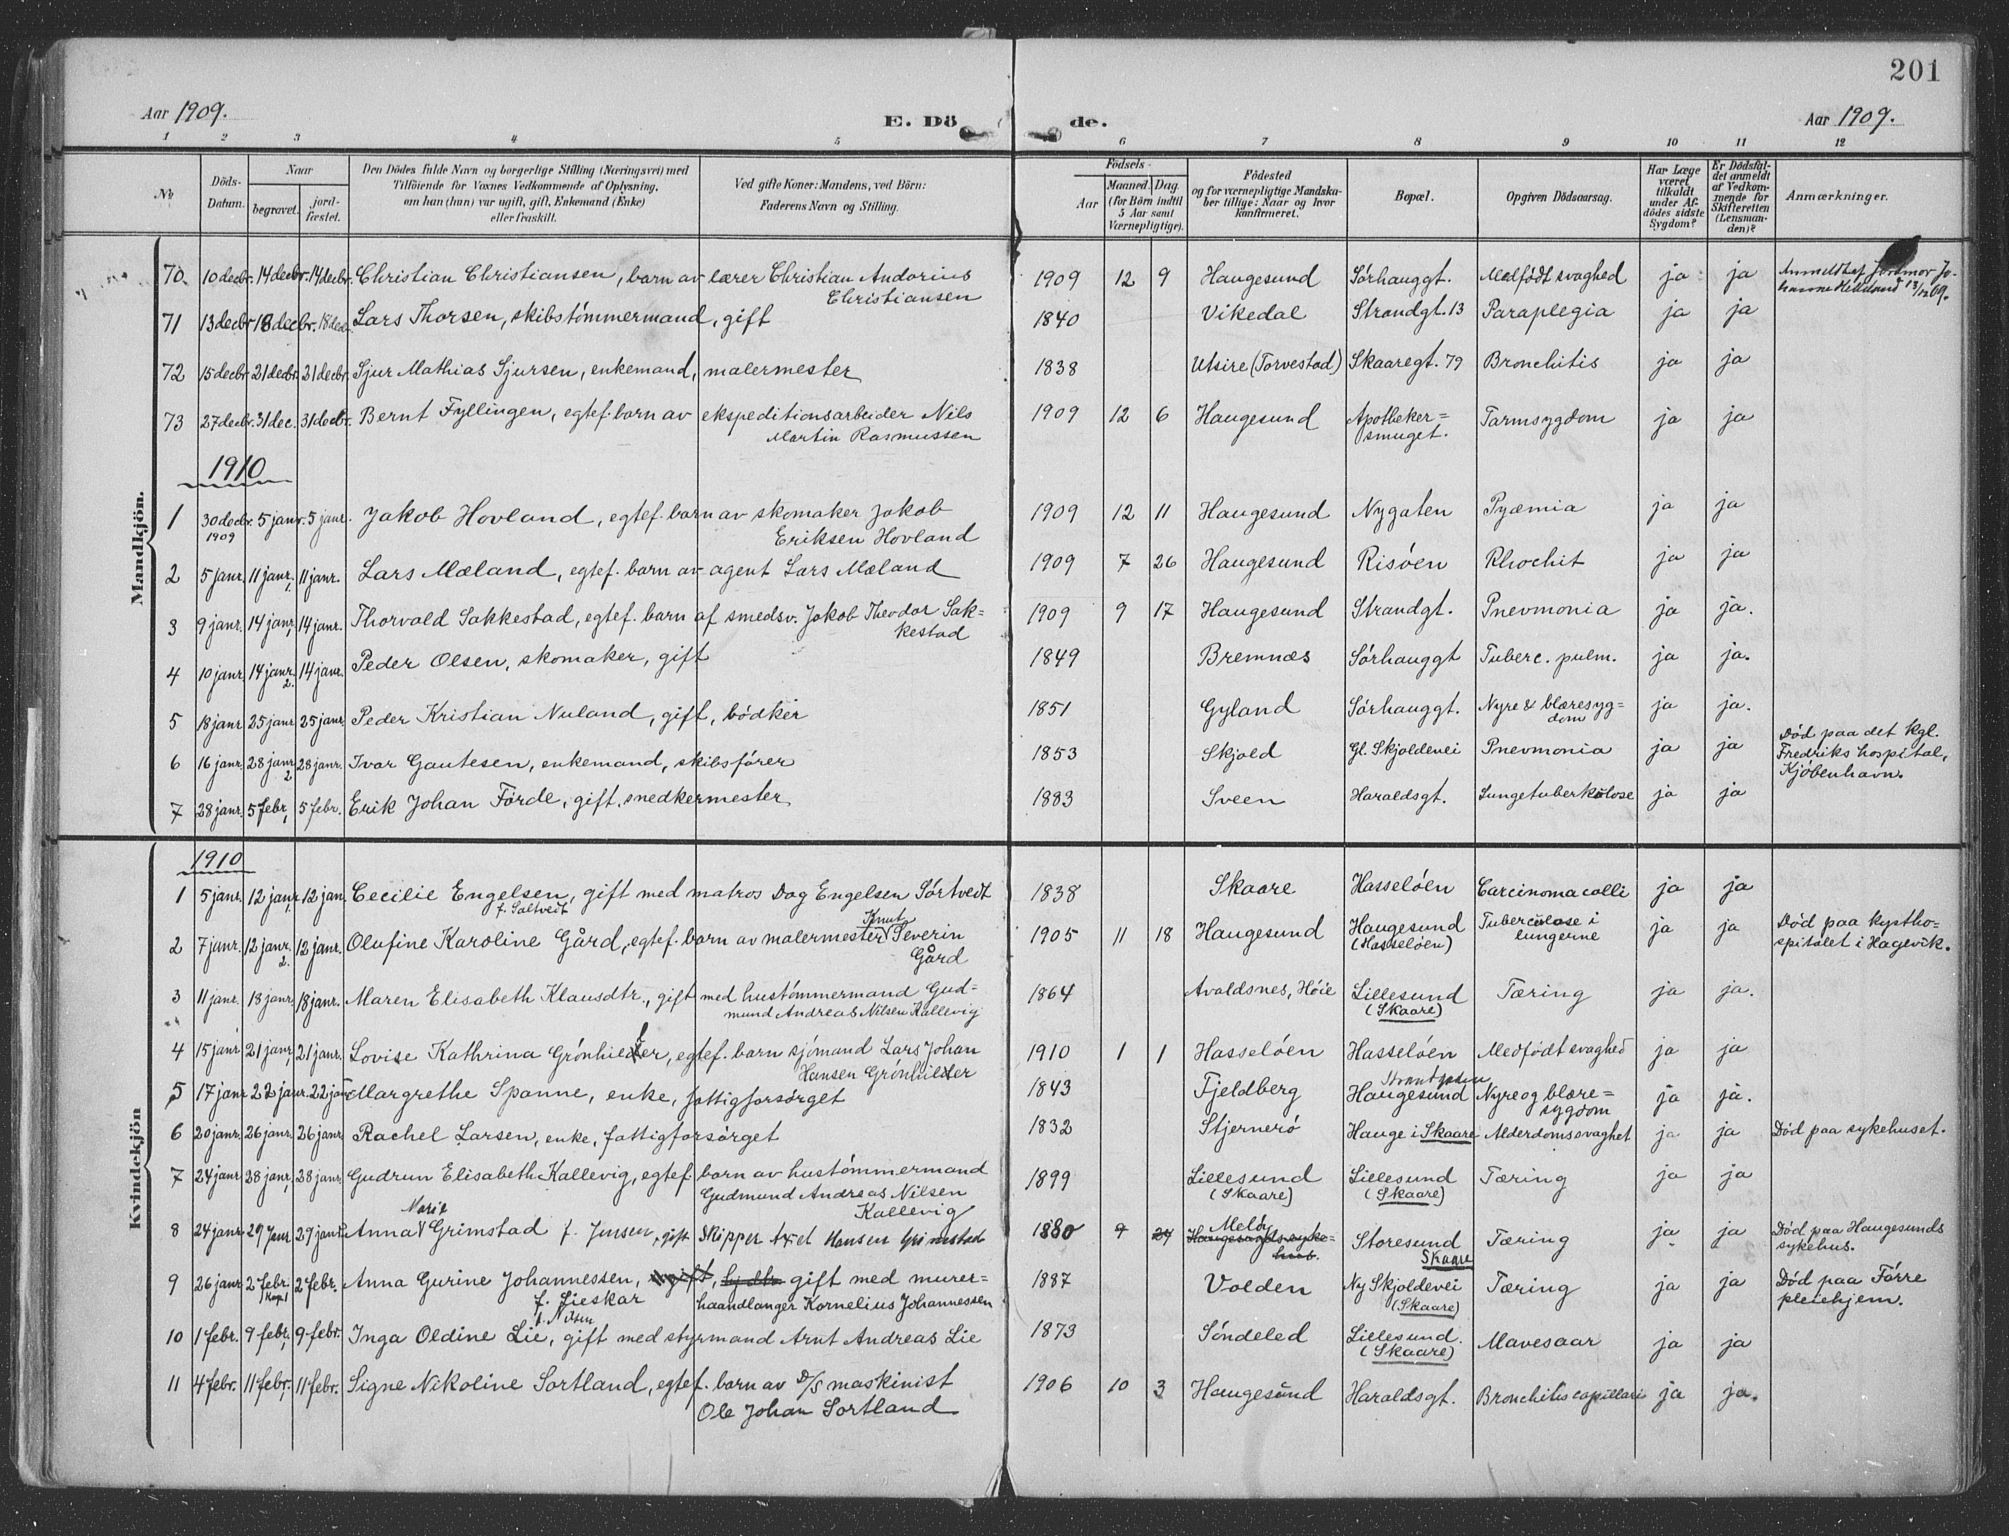 201
Aar 1909. E. Döde. Aar 1909.
1 2 3 4 5 6 7 8 9 10 11 12
No. Döds-Datum. Naar begravet. jordfæstet. Den Dödes fulde Navn og borgerlige Stilling (Næringsvei) med Tilföiende for Voxnes Vedkommende af Oplysning, om han (hun) var ugift, gift, Enkemand (Enke) eller fraskilt. Ved gifte Koner: Mandens, ved Börn: Faderens Navn og Stilling. Födsels- Aar Maaned. Dag. (for Börn indtil 5 Aar samt Værnepligtige). Födested og for værnepligtige Mandskaber tillige: Naar og hvor konfirmeret. Bopæl. Opgiven Dödsaarsag. Har Læge været tilkaldt under Afdödes sidste Sygdom? Er Dödsfaldet anmeldt af Vedkommende for Skifteretten (Lensmanden)? Anmærkninger.
Mandkjön.
70 10 decbr. 14 decbr. 14 decbr. Christian Christiansen, barn av lærer Christian Andorius Christiansen 1909 12 9 Haugesund Sörhauggt. Medfödt svaghed ja ja Anmeldt af Jordmor Johanne Helleland 13/12 09.
71 13 decbr. 18 decbr. 18 decbr. Lars Thorsen, skibstömmermand, gift 1840 Vikedal Strandgt. 13 Paraplegia ja ja
72 15 decbr. 21 decbr. 21 decbr. Sjur Mathias Sjursen, enkemand, malermester 1838 Utsire (Torvestad) Skaaregt. 79 Bronchitis ja ja
73 27 decbr. 31 dec. 31 decbr. Bernt Fyllingen, egtef. barn av ekspeditionsarbeider Nils Martin Rasmussen 1909 12 6 Haugesund Apothekersmuget. Tarmsygdom ja ja
1910
1 30 decbr. 1909 5 janr. 5 janr. Jakob Hovland, egtef. barn av skomaker Jakob Eriksen Hovland 1909 12 11 Haugesund Nygaten Pyæmia ja ja
2 5 janr. 11 janr. 11 janr. Lars Mæland, egtef. barn av agent Lars Mæland 1909 7 26 Haugesund Risöen Rhochit ja ja
3 9 janr. 14 janr. 14 janr. Thorvald Sakkestad, egtef. barn af smedsv. Jakob Theodor Sakkestad 1909 9 17 Haugesund Strandgt. Pnevmonia ja ja.
4 10 janr. 14 janr. 2. 14 janr. Peder Olsen, skomaker, gift 1849 Bremnæs Sörhauggt Tuberc. pulm. ja ja.
5 18 janr. 25 janr. 25 janr. Peder Kristian Nuland, gift, bödker 1851 Gyland Sörhauggt. Nyre & blæresygdom ja ja.
6 16 janr. 28 janr. 2 28 janr. Ivar Gautesen, enkemand, skibsförer 1853 Skjold Gl. Skjoldevei Pnevmonia ja ja Död paa det kgl. Fredriks hospital, Kjöbenhavn.
7 28 janr. 5 febr. 5 febr. Erik Johan Förde, gift, snedkermester 1883 Sveen Haraldsgt. Lungetuberkulose ja ja
Kvindekjön
1910
1 5 janr. 12 janr. 12 jan. Cecilie Engelsen, f. Saltvedt gift med matros Dag Engelsen Sörtvedt 1838 Skaare Hasselöen Carcinoma colli ja ja
2 7 janr. 12 janr. 2. 12 janr. Olufine Karoline Gård, egtef. barn av malermester Knut Severin Gård 1905 11 18 Haugesund Haugesund (Hasselöen) Tuberculose i lungerne ja ja Död paa kysthospitalet i Hagevik.
3 11 janr. 18 janr. 18 janr. Maren Elisabeth Klausdtr., gift med hustömmermand Gudmund Andreas Nilsen Kallevig 1864 Avaldsnes, Höie Lillesund (Skaare) Tæring ja ja.
4 15 janr 21 janr 21 janr. Lovise Kathrina Grönhieller, egtef. barn sjömand Lars Johan Hansen Grönhieller 1910 1 1 Hasselöen Hasselöen Medfödt svaghed ja ja
5 17 janr 22 janr. 22 janr Margrethe Spanne, enke, fattigforsörget 1843 Fjeldberg Strandgaden Haugesund Nyre og blæresygdom ja ja.
6 20 janr. 26 janr. 26 janr. Rachel Larsen, enke, fattigforsörget 1832 Stjernerö Hauge i Skaare Alderdomssvaghet ja ja Död paa sykehuset.
7 24 janr 28 janr. 28 janr. Gudrun Elisabeth Kallevig, egtef. barn av hustömmermand Gudmund Andreas Nilsen Kallevig 1899 Lillesund (Skaare) Lillesund (Skaare) Tæring ja ja
8 24 janr. 29 janr 29 janr. Anna Marie Grimstad f. Jensen, gift Skipper Axel Hansen Grimstad 1880 9 24 Melö Haugesunds sykehus. Storesund Skaare Tæring ja ja Död paa Haugesunds sykehus.
9 26 janr 2 febr. 2 febr. Anna Gurine Johannessen, ugift, f. Lieskar gift med murerhaandlanger Kornelius Johannessen 1887 Volden Ny Skjoldevei (Skaare) Tæring ja ja Död paa Förre pleiehjem.
10 1 febr. 9 febr. 9 febr. Inga Oldine Lie, f. Nilsen gift med styrmand Arnt Andreas Lie 1873 Söndeled Lillesund. (Skaare) Mavesaar ja ja
11 4 febr. 11 febr. 11 febr. Signe Nikoline Sortland, egtef. barn av D/S maskinist Ole Johan Sortland 1906 10 3 Haugesund Haraldsgt. Bronchitis capillaris ja ja.